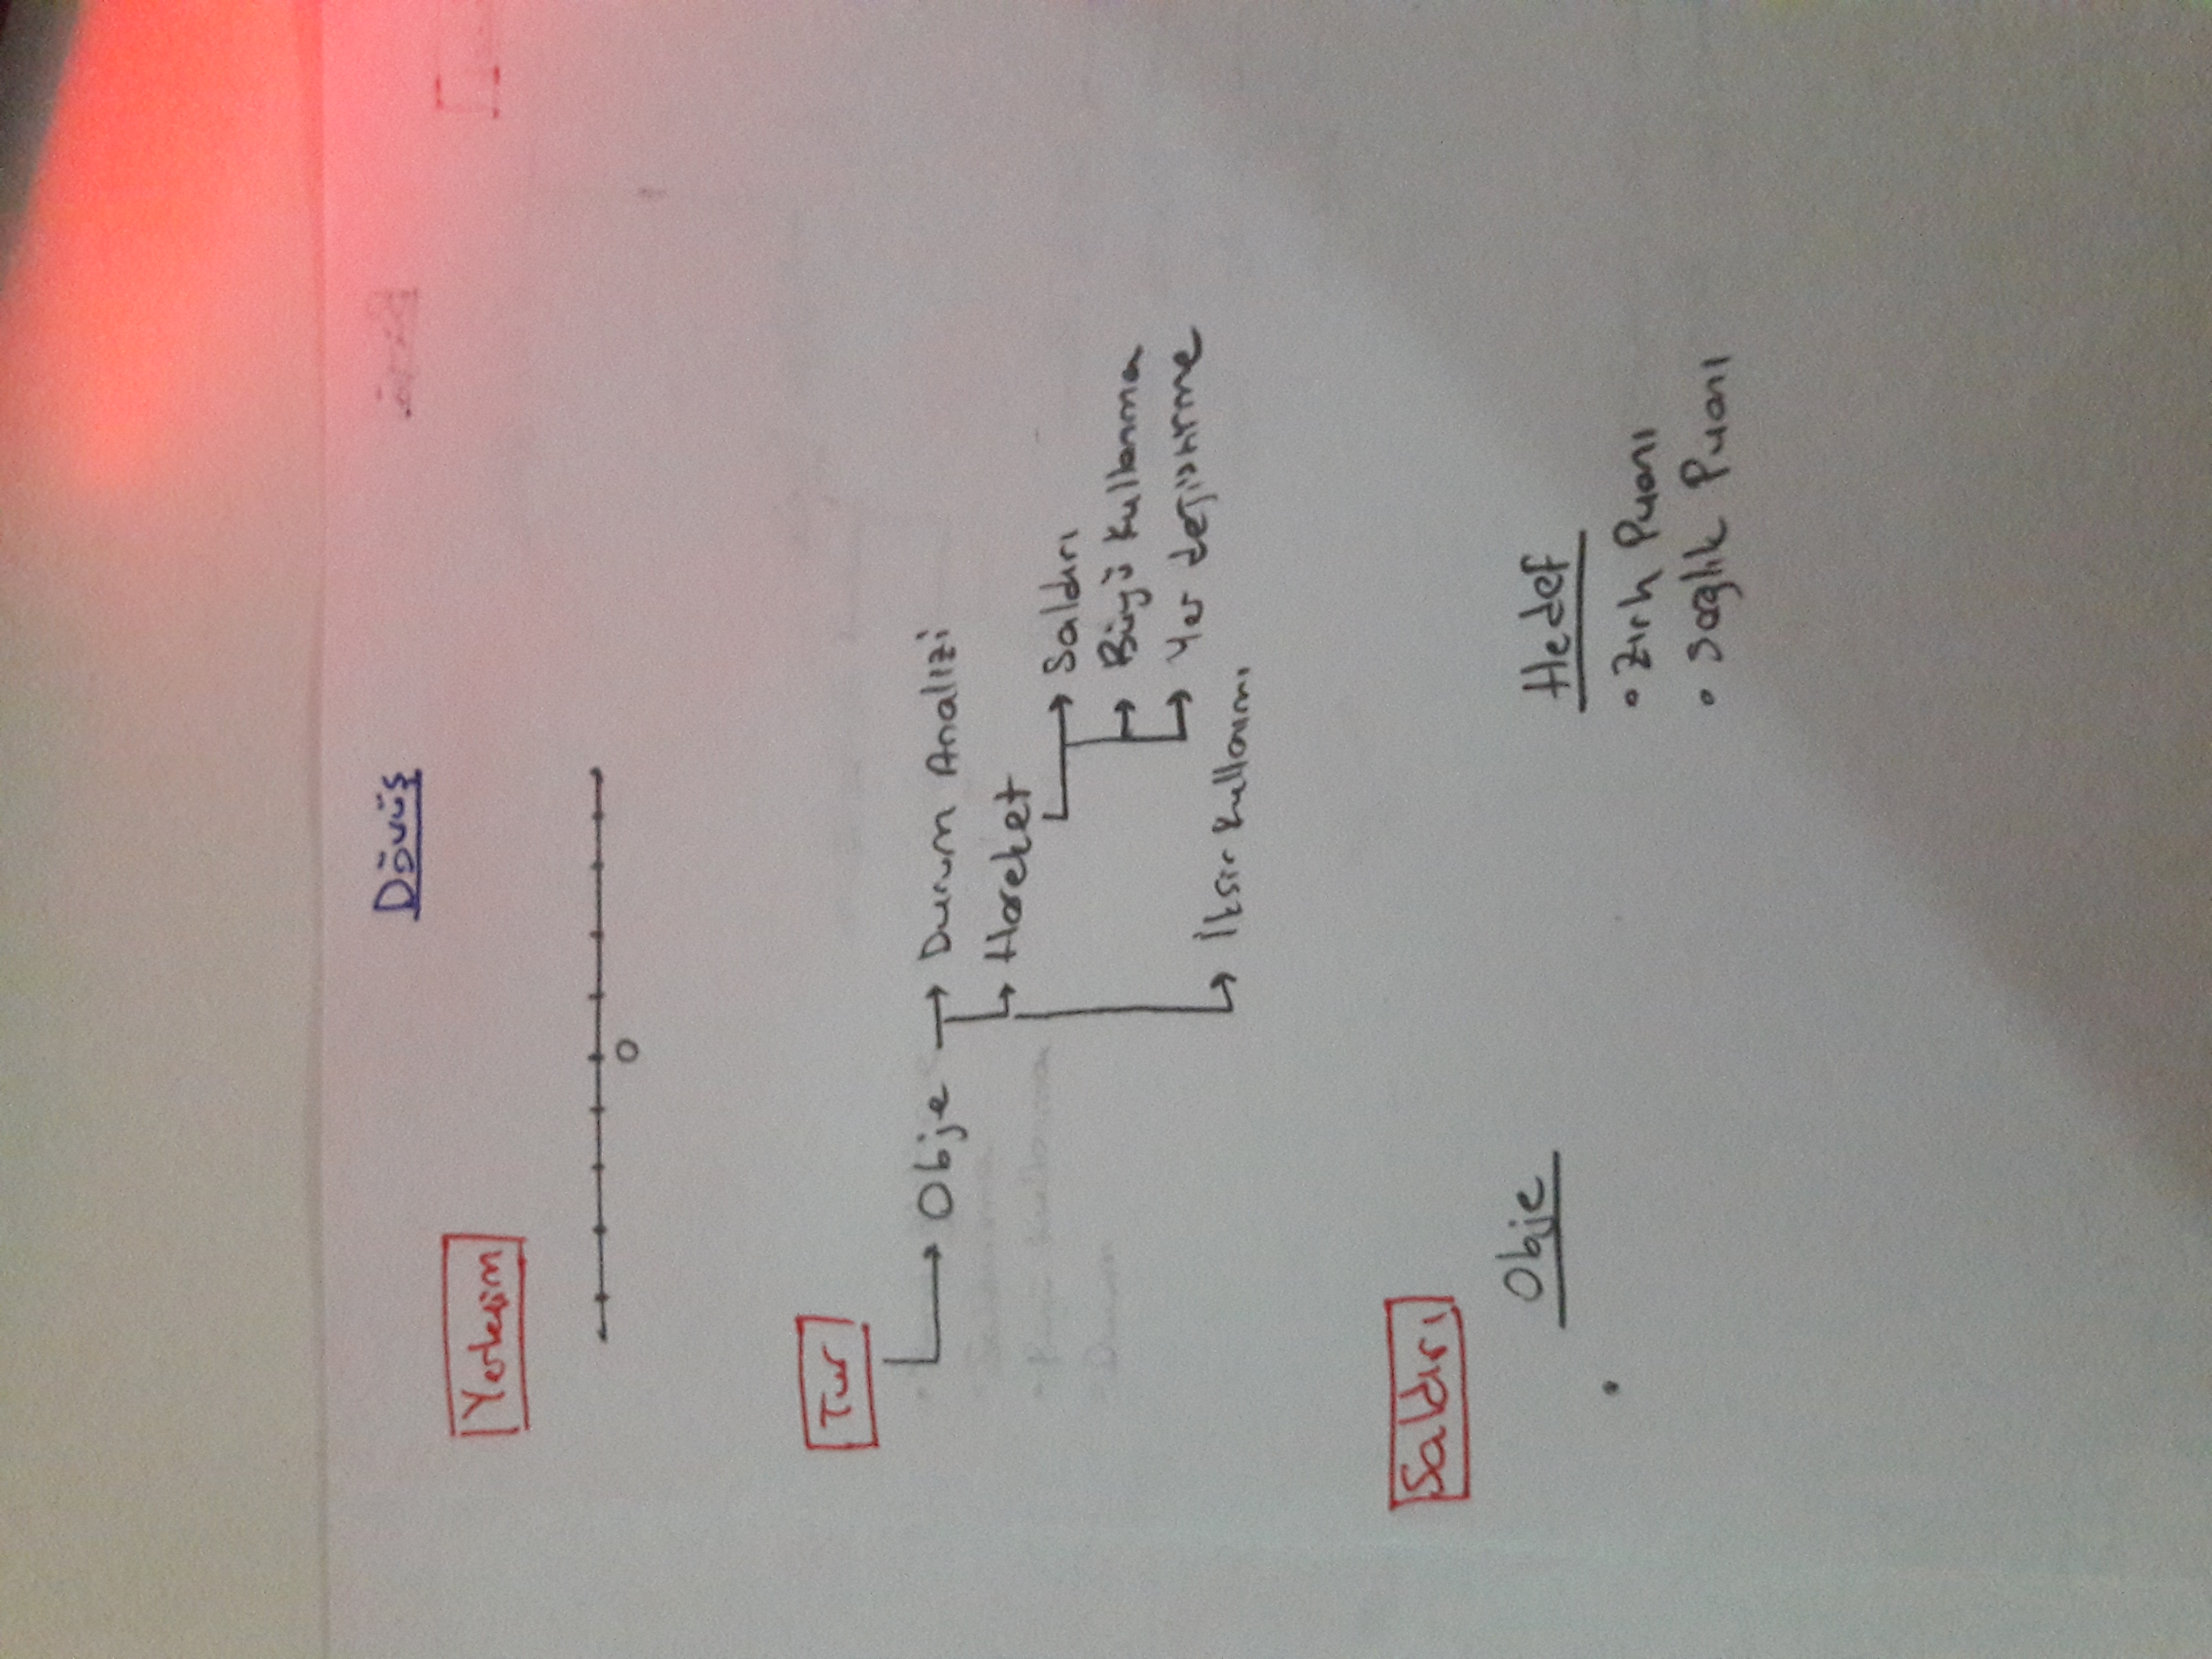 Dövüş
Yerleşim
0
Tur
Obje
Durum Analizi
Hareket
Saldırı
Büyü Kullanma
Yer değiştirme
İksir Kullanımı
Saldırı
Obje
Hedef
• Zırh Puanı
• Sağlık Puanı